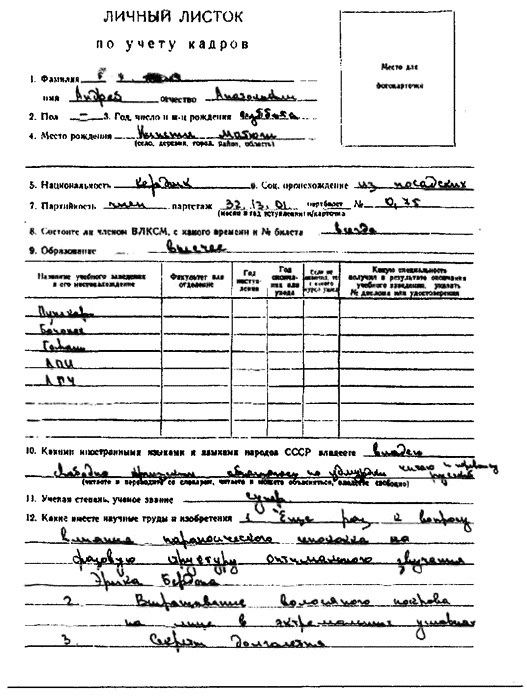 ЛИЧНЫЙ ЛИСТОК
по учету кадров
Место для
фотокарточки
1. Фамилия
имя Андрей отчество Анатольевич
2. Пол — 3. Год, число и м-ц рождения суббота
4. Место рождения
(село, деревня, город, район, область)
5. Национальность кердык 6. Соц. происхождение из посадских
7. Партийность член партстаж 32.13.01 партбилет № 0,75
(месяц и год вступления) к/карточка
8. Состоите ли членом ВЛКСМ, с какого времени и № билета всегда
9. Образование высчее
Название учебного заведения и его местонахождение
Факультет или отделение
Год поступления
Год окончания или ухода
Если не окончил, то с какого курса ушел
Какую специальность получил в результате окончания учебного заведения, указать № диплома или удостоверения
Пушкар
ЛПИ
10. Какими иностранными языками и языками народов СССР владеете владею
свободно читаю и перевожу
русский
(читаете и переводите со словарем, читаете и можете объясняться, владеете свободно)
11. Ученая степень, ученое звание супер
12. Какие имеете научные труды и изобретения 1 Еще раз к вопросу
влияния на
фазовую структуру оптимального звучания
Эрика Бердона
2. Выращивание волосяного покрова
на лице в экстремальных условиях
3. Секрет долголетия